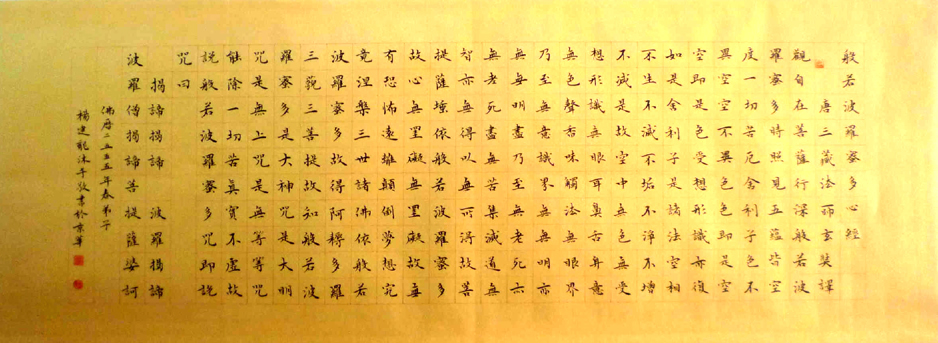 般若波羅蜜多心經
唐三藏法師玄奘譯
觀自在菩薩行深般若波
羅蜜多時照見五蘊皆空
度一切苦厄舍利子色不
異空空不異色色即是空
空即是色受想行識亦復
如是舍利子是諸法空相
不生不滅不垢不淨不增
不減是故空中無色無受
想行識無眼耳鼻舌身意
無色聲香味觸法無眼界
乃至無意識界無無明亦
無無明盡乃至無老死亦
無老死盡無苦集滅道無
智亦無得以無所得故菩
提薩埵依般若波羅蜜多
故心無罣礙無罣礙故無
有恐怖遠離顛倒夢想究
竟涅槃三世諸佛依般若
波羅蜜多故得阿耨多羅
三藐三菩提故知般若波
羅蜜多是大神咒是大明
咒是無上咒是無等等咒
能除一切苦真實不虛故
說般若波羅蜜多咒即說
咒曰
揭諦揭諦 波羅揭諦
波羅僧揭諦菩提薩婆訶
佛曆二五五五年春弟子
楊建龍沐手敬書於京華